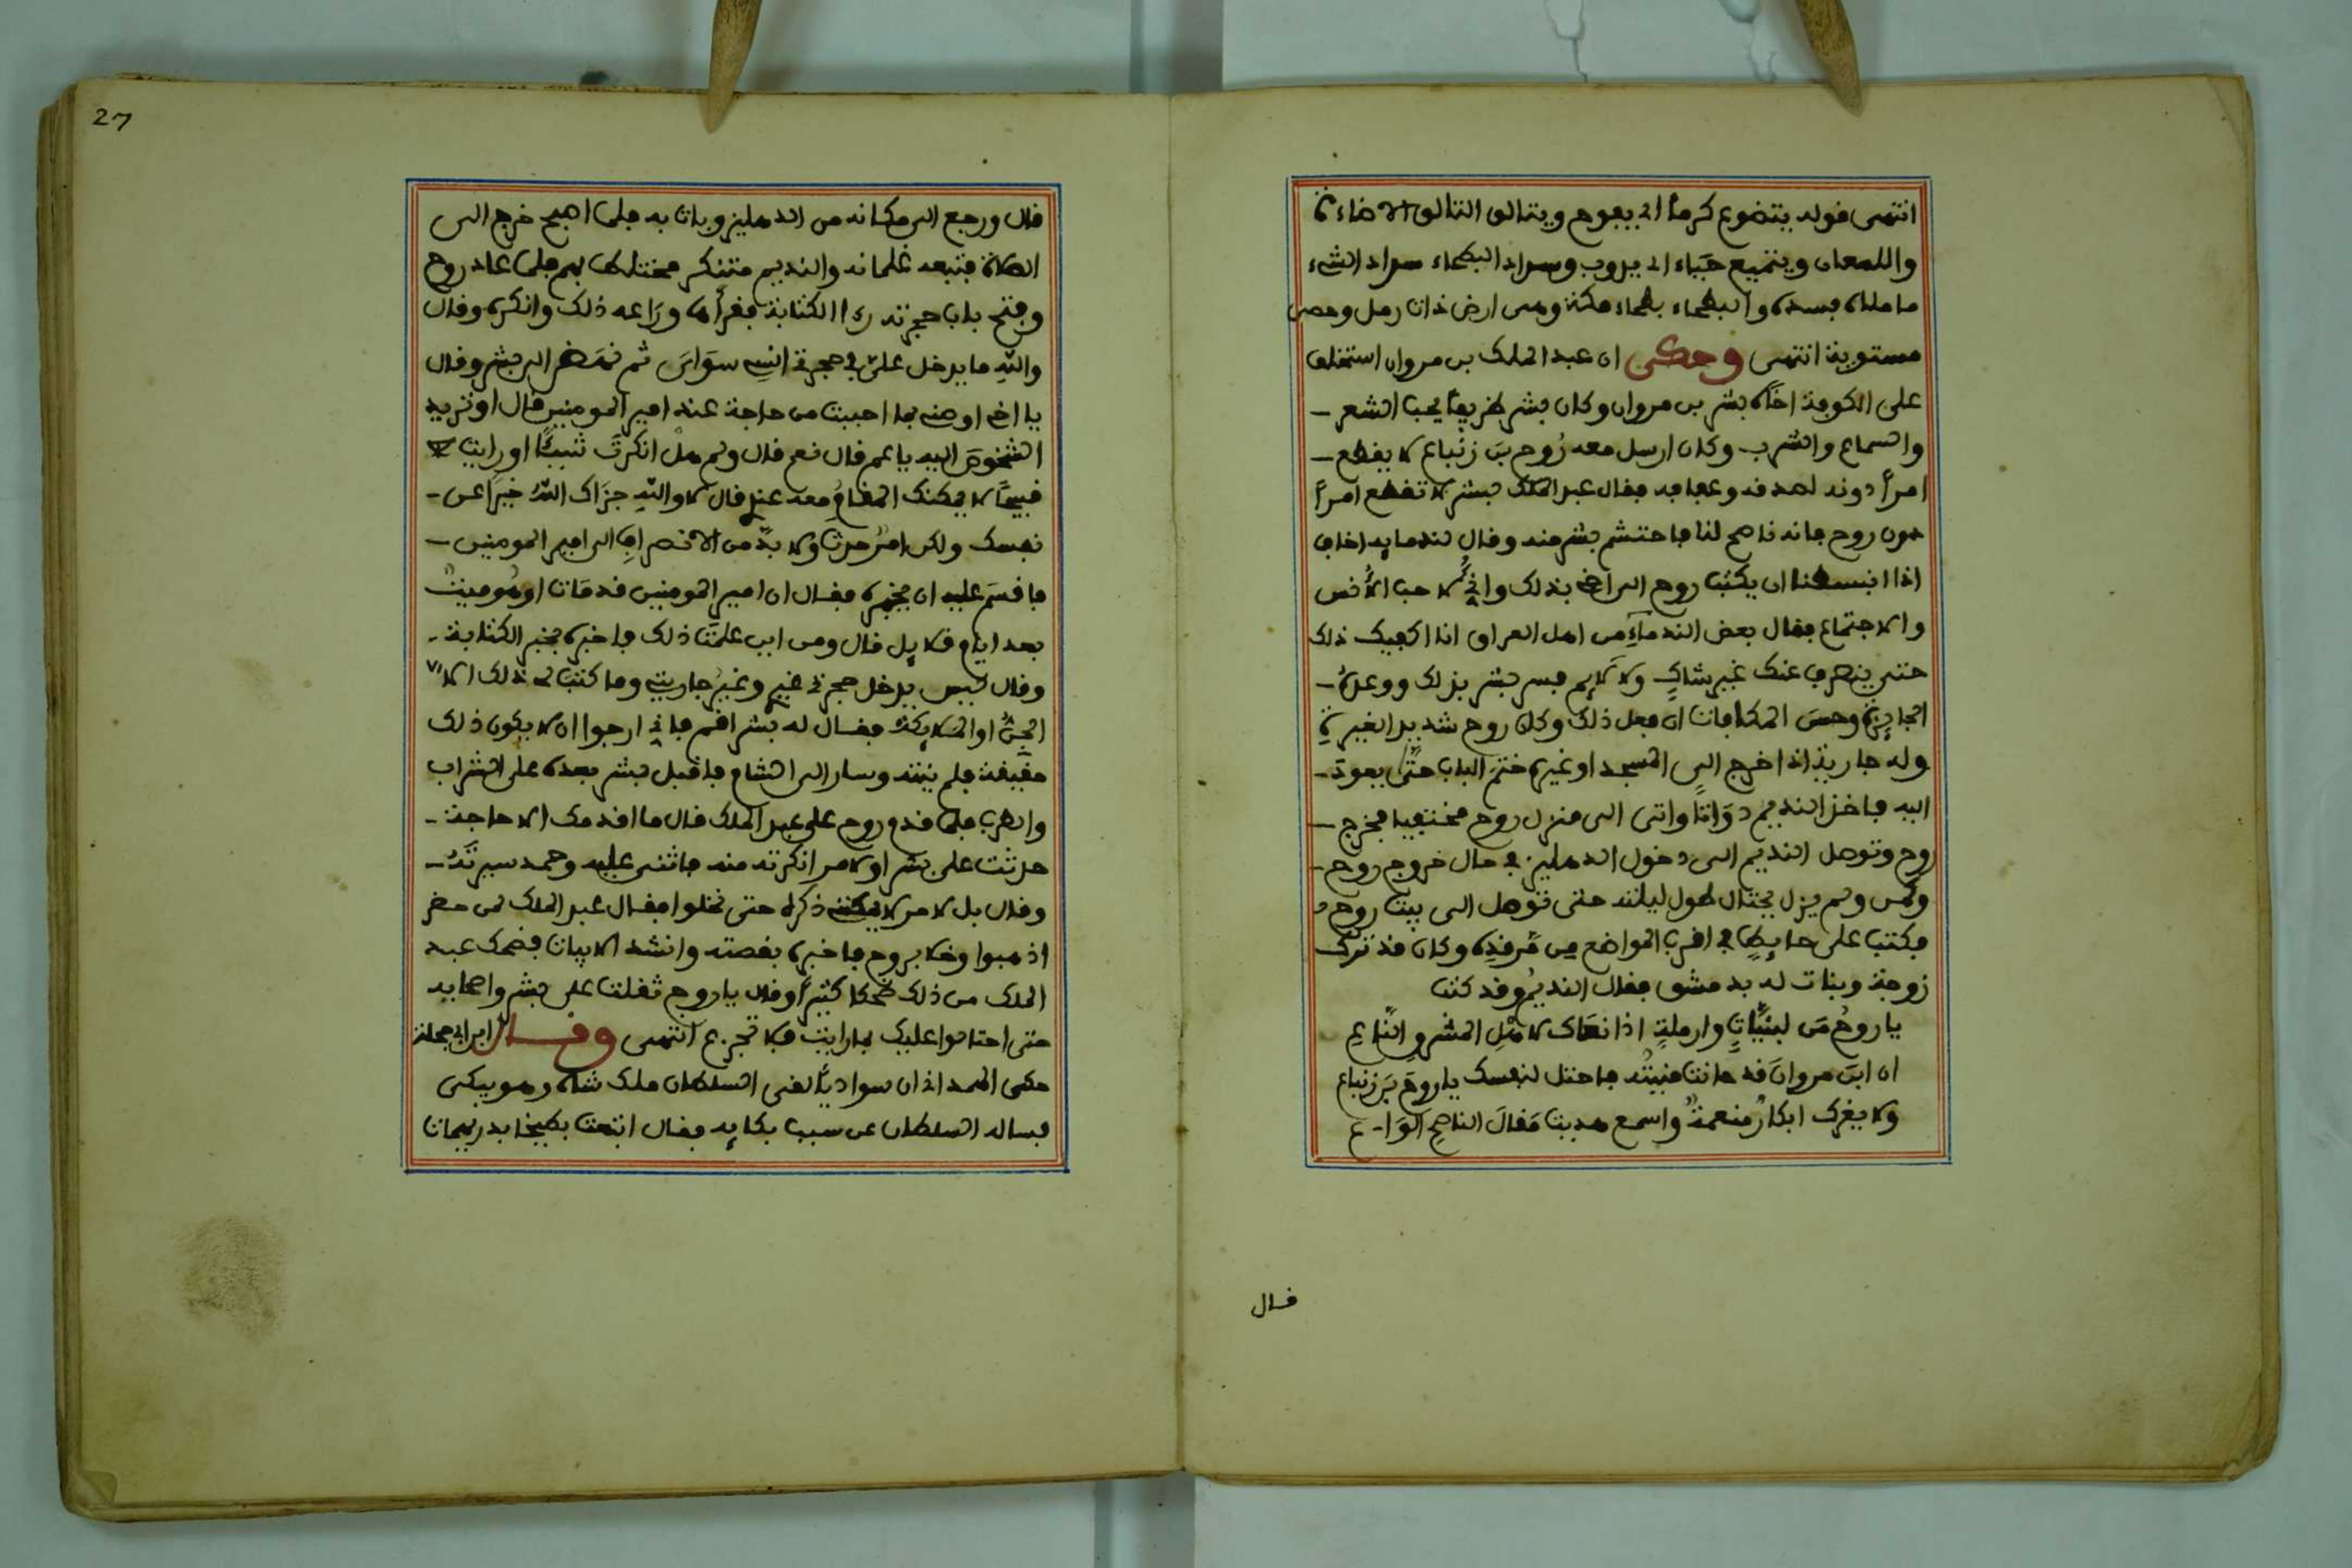 انتهى قوله يتضوع كرما اي يفوح ويتالق التالق الاضاءة
واللمعان ويتميع حياء اي يذوب وسراد البطحاء سراد الشيء
ما ملاه فسده والبطحاء بطحاء مكة وهي ارض ذات رمل وحصى
مستوية انتهى وحكى ان عبد الملك بن مروان استخلف
على الكوفة اخاه بشر بن مروان وكان بشر ظريفا يحب الشعر
والسماع والشرب وكان ارسل معه رُوح بن زنباع لا يقطع
امرا دونه لصدقه وعفافه فقال عبد الملك لبشر لا تقطع امرا
دون روح فانه ناصح لنا فاحتشم بشر منه وقال لندمايه اخاف
اذا انبسطنا ان يكتب روح الى اخي بذلك واني لاحب الانس
والاجتماع فقال بعض الندماء من اهل العراق انا اكفيك ذلك
حتى ينصرف عنك غير شاكٍ ولا لايم فسر بشر بذلك ووعده
الجايزة وحسن المكافات ان فعل ذلك وكان روح شديد الغيرة
وله جارية اذا خرج الى المسجد او غيره ختم الباب حتى يعود
اليه فاخذ النديم دواتا واتى الى منزل روح مختفيا فخرج
روح وتوصل النديم الى دخول الدهليز في حال خروج روح
وكمن ولم يزل يحتال طول ليلته حتى توصل الى بيت روح
فكتب على حايطٍ في اقرب المواضع من مرقده وكان قد ترك
زوجة وبنات له بدمشق فقال النديم وقد كتب
يا روحُ من لبنيّاتٍ وارملةٍ اذا نعاك لاهل المشرق الناعِ
ان ابن مروان قد حانت منيتُه فاحتل لنفسك يا روح بن زنباع
ولا يغرك ابكارٌ منعمةٌ واسمع هديت مقال الناصح الواع
قال
27
قال ورجع الى مكانه من الدهليز وبات به فلما اصبح خرج الى
الصلاة فتبعه غلمانه والنديم متنكر مختلط بهم فلما عاد روح
وفتح باب حجرته راا الكتابة فقرأها وراعه ذلك وانكره وقال
واللهِ ما يدخل علىّ في حجرتي انسي سوَاىَ ثم نهض الى بشر وقال
يا اخي اوصني بما احببت من حاجة عند امير المومنين قال او تريد
الشخوص اليه يا عم قال نعم قال ولم هل انكرت شيئا او رايت
قبيحًا لا يمكنك المقامُ معه عندي قال لا واللهِ جزاك اللهُ خيرا عن
نفسك ولكن امرٌ حدث ولا بدّ من الانصراف الى امير المومنين
فاقسم عليه ان يخبره فقال ان امير المومنين قد مات او هو ميت
بعد ايام قلايل قال ومن اين علمت ذلك فاخبره بخبر الكتابة
وقال ليس يدخل حجرتي غيري وغيرُ جاريتي وما كتب لي ذلك الا
الجنُّ او الملايكة فقال له بشر اقم فاني ارجوا ان لا يكون ذلك
حقيقة فلم يثنه وسار الى الشام فاقبل بشر بعده على الشراب
والطرب فلما قدم روح على عبد الملك قال ما اقدمك الا حاجة
حدثت على بشر او لامر انكرته منه فاثنى عليه وحمد سيرته
وقال بل لامر لا يمكنني ذكره حتى تخلوا فقال عبد الملك لمن حضر
اذهبوا وخلا بروح فاخبره بقصته وانشد الابيات فضحك عبد
الملك من ذلك ضحكا كثيراً وقال يا روح ثقلت على بشر واصحابه
حتى احتالوا عليك بما رايت فلا تجزع انتهى وقال ابن ابي حجلة
حكى الهمداني ان سواديّا لقى السلطان ملك شاه وهو يبكى
فساله السلطان عن سبب بكايه فقال ابتعت بطيخا بدريهمات